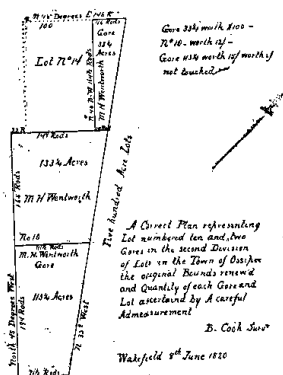 N 45 Degrees E
100
46 Rods
Lot Nº 14
Gore
33¾
Acres
M H Wentworth
149 Rods
133¾ Acres
M H Wentworth
Nº 10
M. H. Wentworth
Gore
113¾ Acres
North 45 Degrees West
194 Rods
N 33º West
Five hundred Acre Lots
Gore 33¾ worth $100 -
Nº 10 - worth 12/-
Gore 113¾ worth 15/ worth if
not touched
A Correct Plan representing
Lot numbered ten and two
Gores in the second Division
of Lots in the Town of Ossipee
the original Bounds renew'd
and Quantity of each Gore and
Lot ascertain'd by A careful
Admeasurement
B. Cook Survr
Wakefield 8th June 1820